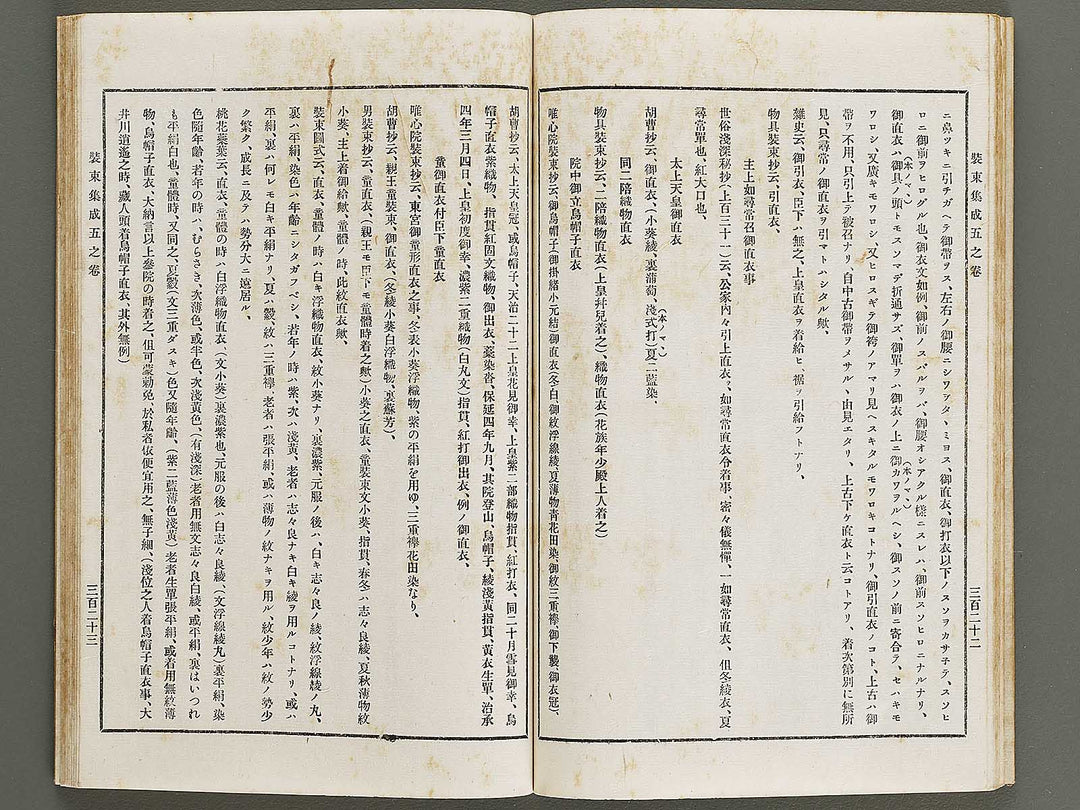 裝束集成五之卷
三百二十二
ニ鼻ワキニ引チガヘテ御帶ヲス、左右ノ御腰ニシワアタ、ミヨス、御直衣、御打衣以下ノスソヲカサネテ、スソヒ
ロニ御前ヲヒログル也、御衣文如例、御前ノスバルヲバ、御腰オシアクル樣ニスレハ、御前スソヒロニナルナリ、
御直衣ハ御具ノ頭トモスソマデ折通サズ、御單ヲハ御衣ノ上ニ御カワヲルヘシ、御スソノ前ニ寄合テ、セハキモ
(本ノマヽ)
(本ノマヽ)
ワロシ、又廣キモワロシ、又ヒロスギテ御袴ノアマリ見ヘスキタルモワロキコトナリ、御引直衣ノコト、上古ハ御
帶ヲ不用、只引上テ被召ナリ、自中古御帶ヲメサル、由見エタリ、上古下ケ直衣ト云コトアリ、着次第別に無所
見、只尋常ノ御直衣ヲ引マトハシタル歟、
雜史云、御引衣、臣下ハ無之、上皇直衣ヲ着給ヒ、裾ヲ引給フトナリ、
物具裝束抄云、引直衣、
主上如尋常召御直衣事
世俗淺深秘抄(上百三十一)云、公家內々引上直衣、如尋常直衣令着事、密々儀無憚、一如尋常直衣、但冬綾衣、夏
尋常單也、紅大口也、
太上天皇御直衣
胡曹抄云、御直衣、(小葵綾、裏蒲萄、淺式打)夏二藍染、
(本ノマヽ)
同二陪織物直衣
物具裝束抄云、二陪織物直衣(上皇幷兒着之)、織物直衣(花族年少殿上人着之)
院中御立烏帽子直衣
唯心院裝束抄云、御烏帽子(御掛緒小元結)御直衣(冬白、御紋浮線綾、夏薄物靑花田染、御紋三重襷、御下襲、御衣冠)、
胡曹抄云、太上天皇冠、或烏帽子、天治二十二上皇花見御幸、上皇紫二部織物指貫、紅打衣、同二十月雪見御幸、烏
帽子直衣紫織物、指貫紅固文織物、御出衣、藁染沓、保延四年九月、其院登山、烏帽子、綾淺黃指貫、黃衣生單、治承
四年三月四日、上皇初度御幸、濃紫二重織物(白丸文)指貫、紅打御出衣、例ノ御直衣、
童御直衣付臣下童直衣
唯心院裝束抄云、東宮御童形直衣之事、冬表小葵浮織物、紫の平絹を用ゆ、三重襷花田染なり、
胡曹抄云、親王童裝束、御直衣、(冬綾小葵白浮織物、裏蘇芳)、
男裝束抄云、童直衣、(親王モ臣下モ童體時着之歟)小葵之直衣、童裝束文小葵、指貫、春冬ハ志々良綾、夏秋薄物紋
小葵、主上着御給歟、童體ノ時、此紋直衣歟、
裝束圖式云、直衣、童體ノ時ハ白キ浮織物直衣、紋小葵ナリ、裏濃紫、元服ノ後ハ、白キ志々良ノ綾、紋浮線綾ノ丸、
裏ハ平絹、染色ハ年齡ニシタガフベシ、若年ノ時ハ紫、次ハ淺黃、老者ハ志々良ナキ白キ綾ヲ用ルコトナリ、或ハ
平絹、裏ハ何レモ白キ平絹ナリ、夏ハ縠、紋ハ三重襷、老者ハ張平絹、或ハ薄物ノ紋ナキヲ用ル、紋少年ハ紋ノ勢少
ク繁ク、成長ニ及テハ勢分大ニ遠居ル、
桃花蘂葉云、直衣、童體の時ハ白浮織物直衣、(文小葵)裏濃紫也、元服の後ハ白志々良綾、(文浮線綾丸)裏平絹、染
色隨年齡、若年の時ハ、むらさき、次薄色、或半色、次淺黃色、(有淺深)老者用無文志々良白綾、或平絹、裏はいつれ
も平絹白也、童體時、又同之、夏縠(文三重ダスキ)色又隨年齡、(紫二藍薄色淺黃)老者生單張平絹、或着用無紋薄
物、烏帽子直衣、大納言以上參院の時着之、但可蒙勅免、於私者依便宜用之、無子細、(淺位之人着烏帽子直衣事、大
井川逍遙之時、藏人頭着烏帽子直衣、其外無例)
裝束集成五之卷
三百二十三